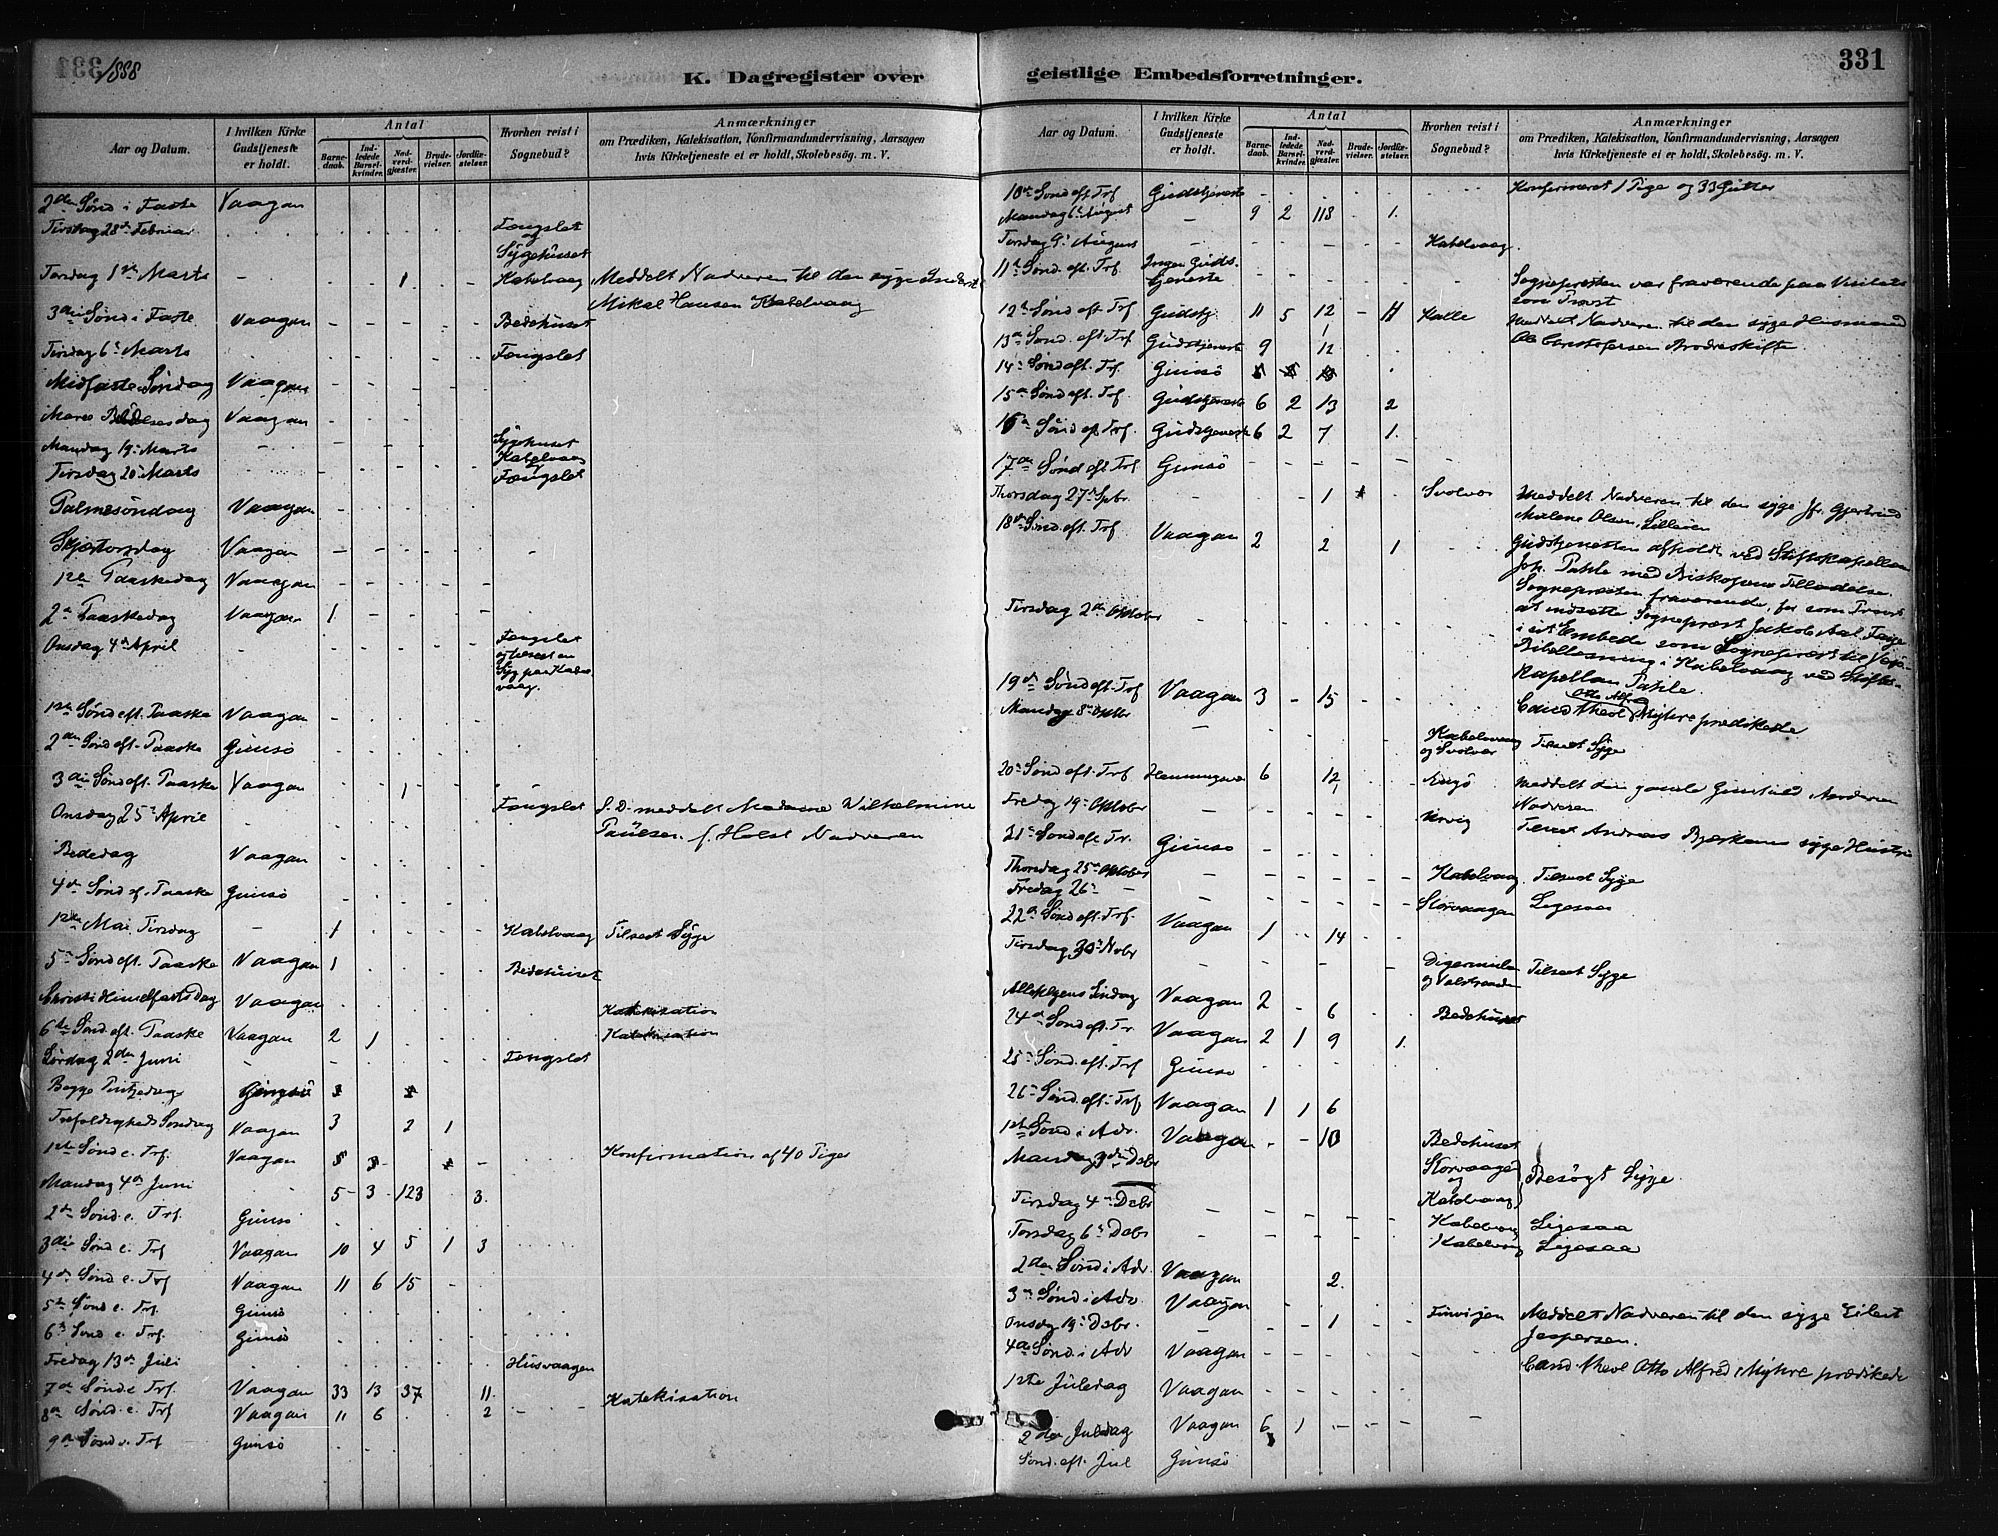 1888
331
K. Dagregister over geistlige Embedsforretninger.
Aar og Datum.
I hvilken Kirke Gudstjeneste er holdt.
Antal
Barnedaab.
Indledede Barselkvinder.
Nadverdgjæster.
Brudevielser.
Jordfæstelser.
Hvorhen reist i Sognebud?
Anmærkninger
om Prædiken, Katekisation, Konfirmandundervisning, Aarsagen
hvis Kirketjeneste ei er holdt, Skolebesøg. m. V.
2den Sønd i Faste Vaagan
Tirsdag 28de Februar Fængslet og Sygehuset
Torsdag 1ste Marts - 1 Kabelvaag Meddelt Nadveren til den syge
Mikal Hansen Kabelvaag
3die Sønd i Faste Vaagan Bedehuset
Tirsdag 6te Marts Fængslet
Midfaste Søndag Vaagan
Mariæ Budelsesdag Vaagan
Mandag 19de Marts Sygehuset Kabelvaag
Tirsdag 20 Marts Fængslet
Palmesøndag Vaagan
Skjærtorsdag Vaagan
1ste Paaskedag Vaagan
2den Paaskedag Vaagan 1
Onsdag 4de April Fængslet
1ste Sønd eft. Paaske Vaagan
2den Sønd eft. Paaske Gimsø
3die Sønd eft. Paaske Vaagan 1
Onsdag 25de April Fængslet S. D. meddelt Madame Wilhelmine
Paulsen f. Holst Nadveren
Bededag Vaagan
4de Sønd ef. Paaske Gimsø
1ste Mai Tirsdag - 1 Kabelvaag Tilseet Syge
5te Sønd eft. Paaske Vaagan 1 Bedehuset
Christi Himelfartsdag Vaagan Katekisation
6te Sønd. eft. Paaske Vaagan 2 1 Katekisation
Lørdag 2den Juni - Fængslet
Begge Pintsedage Gimsø
Trefoldigheds Søndag Vaagan 3 2 1
1ste Sønd e. Trf. Vaagan Konfirmation af 40 Piger
Mandag 4de Juni 5 3 123 3
2den Sønd e. Trf. Gimsø
3die Sønd e. Trf Vaagan 10 4 5 1 3
4de Sønd e. Trf Vaagan 11 6 15
5te Sønd e. Trf. Gimsø
6te Sønd e. Trf. Gimsø
Fredag 13de Juli Husvaagen
7de Sønd e Trf. Vaagan 33 13 37 11 Katekisation
8de Sønd e. Trf Vaagan 11 6 2
9de Sønd e. Trf Gimsø
Aar og Datum.
I hvilken Kirke Gudstjeneste er holdt.
Antal
Barnedaab.
Indledede Barselkvinder.
Nadverdgjæster.
Brudevielser.
Jordfæstelser.
Hvorhen reist i Sognebud?
Anmærkninger
om Prædiken, Katekisation, Konfirmandundervisning, Aarsagen
hvis Kirketjeneste ei er holdt, Skolebesøg. m. V.
10de Sønd eft Trf Gudstjeneste Konfirmeret 1 Pige og 33 Gutter
Mandag 6te August - 9 2 118 1
Torsdag 9de August Kabelvaag
11te Sønd. eft. Trf. Ingen Gudstjeneste Sognepræsten var fraværende paa Visitats
som Provst
12te Sønd eft Trf Gudstj. 11 5 12 Kalle meddelt Nadveren til den syge Husmand
13de Sønd. eft. Trf Gudstjeneste 9 12
14de Sønd eft. Trf. Gimsø
15de Sønd eft. Trf. Gudstjeneste 6 2 13 2
16de Sønd eft. Trf. Gudstjeneste 6 2 7 1
17de Sønd eft Trf Gimsø
Thorsdag 27de Spbr - 1 Svolvær Meddelt Nadveren til den syge Jfr. Gjertrud
Malene Olsen,
18de Sønd. eft. Trf. Vaagan 2 2 1 Gudstjenesten afholdt ved Stiftskapellan
Joh. Pahle med Biskopens Tilladelse.
Sognepræsten fraværende, for som Provst
at indsætte Sognepræst Jakob Aal
i sit Embede som Sognepræst til
Tirsdag 2den Oktober Bibellæsning i Kabelvaag ved Stifts-
kapellan Pahle.
19de Sønd eft. Trf Vaagan 3 - 15 Cand theol Otto Alfred Myhre prædikede
Mandag 8de Oktbr - Kabelvaag og Svolvær Tilseet Syge
20de Sønd eft. Trf 6 12 meddelt den gamle
Nadveren
Fredag 19de Oktober - Tilseet Andreas syge Hustru
21de Sønd eft Tr. Gimsø
Thorsdag 25de Oktober Kabelvaag Tilseet Syge
Fredag 26de - Storvaagan Ligesaa
22de Sønd eft. Trf. Vaagan 1 14
Tirsdag Nobr Digermulen Tilseet Syge
Allehelgens Søndag Vaagan 2 - 6 Bedehuset
24de Sønd eft. Tr. Vaagan 2 1 9 1
25de Sønd. eft. Trf Gimsø
26de Sønd. eft. Trf Vaagan 1 1 6
1ste Sønd i Adv. Vaagan - - 10 Bedehuset
Mandag 3die Debr Storvaagan og Kabelvaag Besøgt Syge
Tirsdag 4de Debr Kabelvaag Ligesaa
Torsdag 6te Debr Kabelvaag Ligesaa
2den Sønd i Adv. Vaagan 2
3die Sønd i Adv Vaagan
Onsdag 19de Debr. - 1 Meddelt Nadveren til den syge Eilert
Jespersen.
4de Sønd i Adv Vaagan Cand theol Otto Alfred Myhre prædikede
1ste Juledag Vaagan
2den Juledag Vaagan 6 1
Sønd. eft. Jul Gimsø